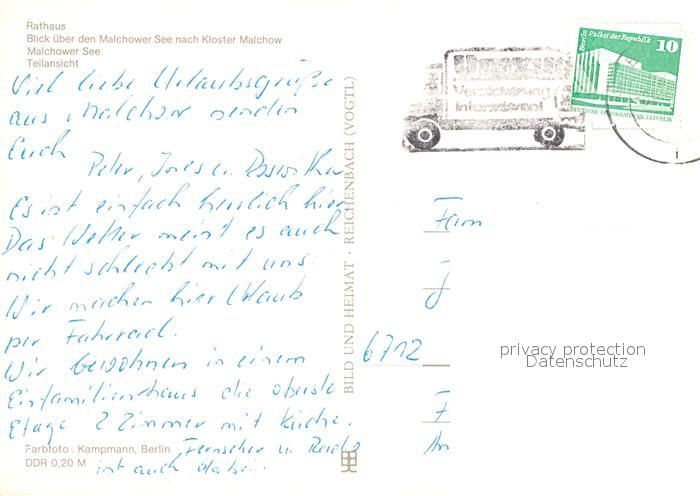 Rathaus
Blick über den Malchower See nach Kloster Malchow
Malchower See
Teilansicht
Viel liebe Urlaubsgrüße
aus Malchow senden
Euch
Peter, Ines u. Roswitha
Es ist einfach herrlich hier
Das Wetter meint es auch
nicht schlecht mit uns.
Wir machen hier Urlaub
per Fahrrad.
Wir bewohnen in einem
Einfamilienhaus die oberste
Etage 2 Zimmer mit Küche.
Fernseher u. Radio
ist auch dabei.
Farbfoto: Kampmann, Berlin
DDR 0,20 M
BILD UND HEIMAT · REICHENBACH (VOGTL)
Versicherung
informieren!
Berlin Palast der Republik
10
DEUTSCHE DEMOKRATISCHE REPUBLIK
Fam
6712
privacy protection
Datenschutz